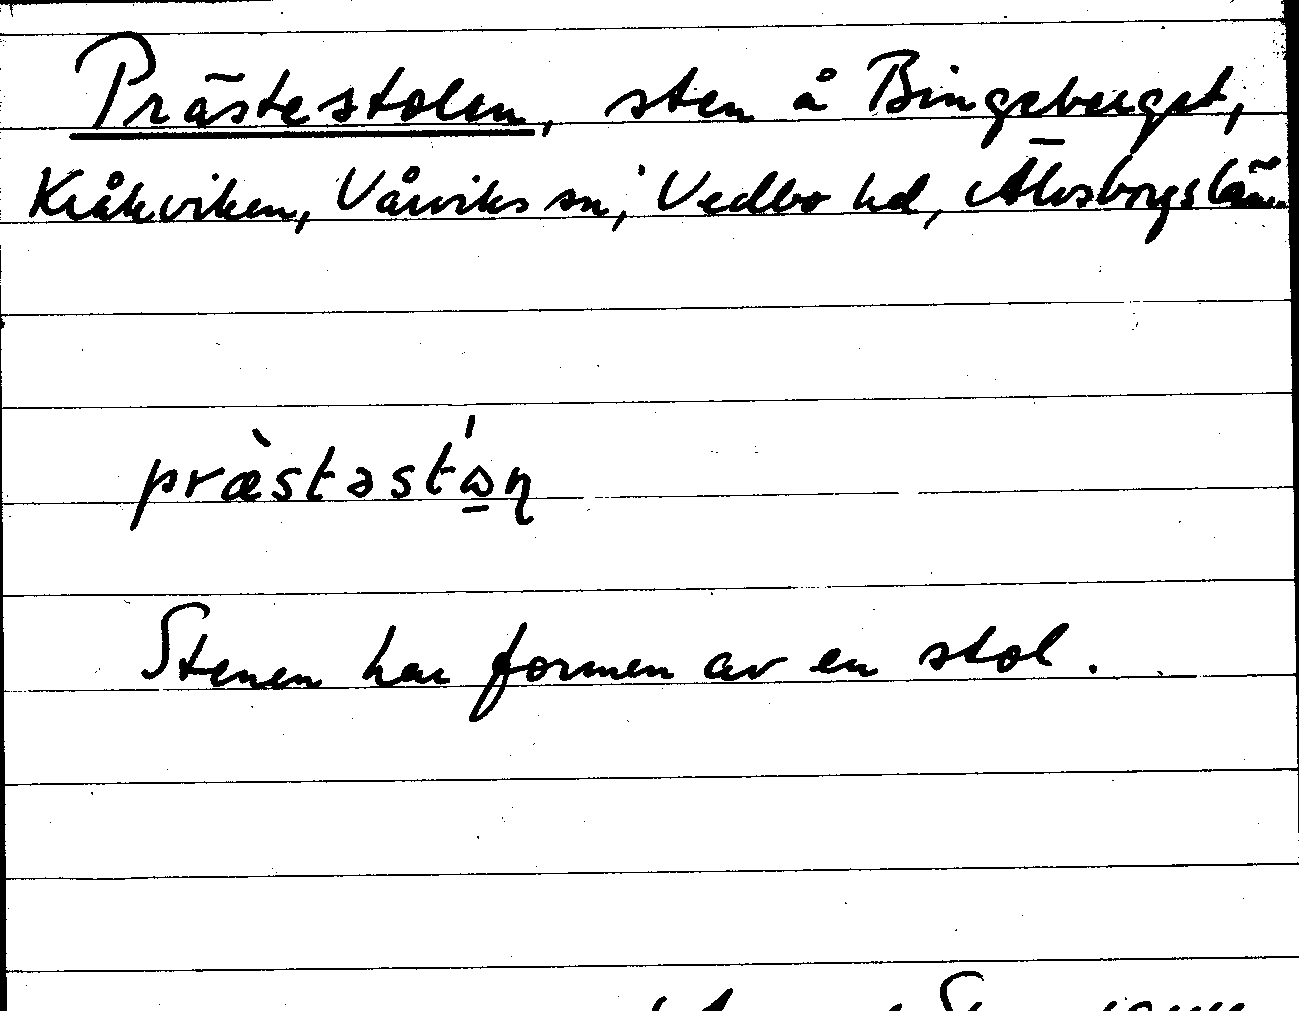 Prästestolen, sten å Bingeberget,
Kråkviken, Vårviks sn, Vedbo hd, Älvsborgs län.
præ̀stəstώ̲ɳ
Stenen har formen av en stol.